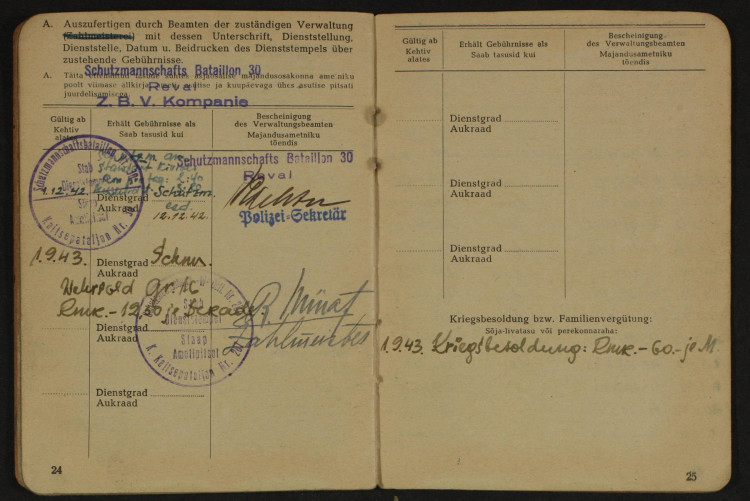 A. Auszufertigen durch Beamten der zuständigen Verwaltung
(Zahlmeisterei) mit dessen Unterschrift, Dienststellung,
Dienststelle, Datum u. Beidrucken des Dienststempels über
zustehende Gebührnisse.
Schutzmannschafts Bataillon 30
Reval
Z. B. V. Kompanie
A. Täita
poolt viimase allkirja, kuupäevaga ühes
juurdelisamisega.
Gültig ab
Kehtiv
alates
Erhält Gebührnisse als
Saab tasusid kui
Bescheinigung
des Verwaltungsbeamten
Majandusametniku
tõendis
Schutzmannschafts Bataillon 30
Reval
Stab
1.12.42.
Dienstgrad Schutzm.
Aukraad
12.12.42.
Polizei=Sekretär
Kaitsepataljon Nr. 30
1.9.43.
Dienstgrad Schm.
Aukraad
Wehrsold Gr. 16
Rmk.- 12,00 je Dekade.
Stab
Dienststempel
Dienstgrad
Aukraad
Staap
Ametipitsat
Kaitsepataljon Nr.
Dienstgrad
Aukraad
24
Gültig ab
Kehtiv
alates
Erhält Gebührnisse als
Saab tasusid kui
Bescheinigung
des Verwaltungsbeamten
Majandusametniku
tõendis
Dienstgrad
Aukraad
Dienstgrad
Aukraad
Dienstgrad
Aukraad
Kriegsbesoldung bzw. Familienvergütung:
Sõja-livatasu või perekonnaraha:
1.9.43. Kriegsbesoldung: Rmk.- 60.- je M.
25